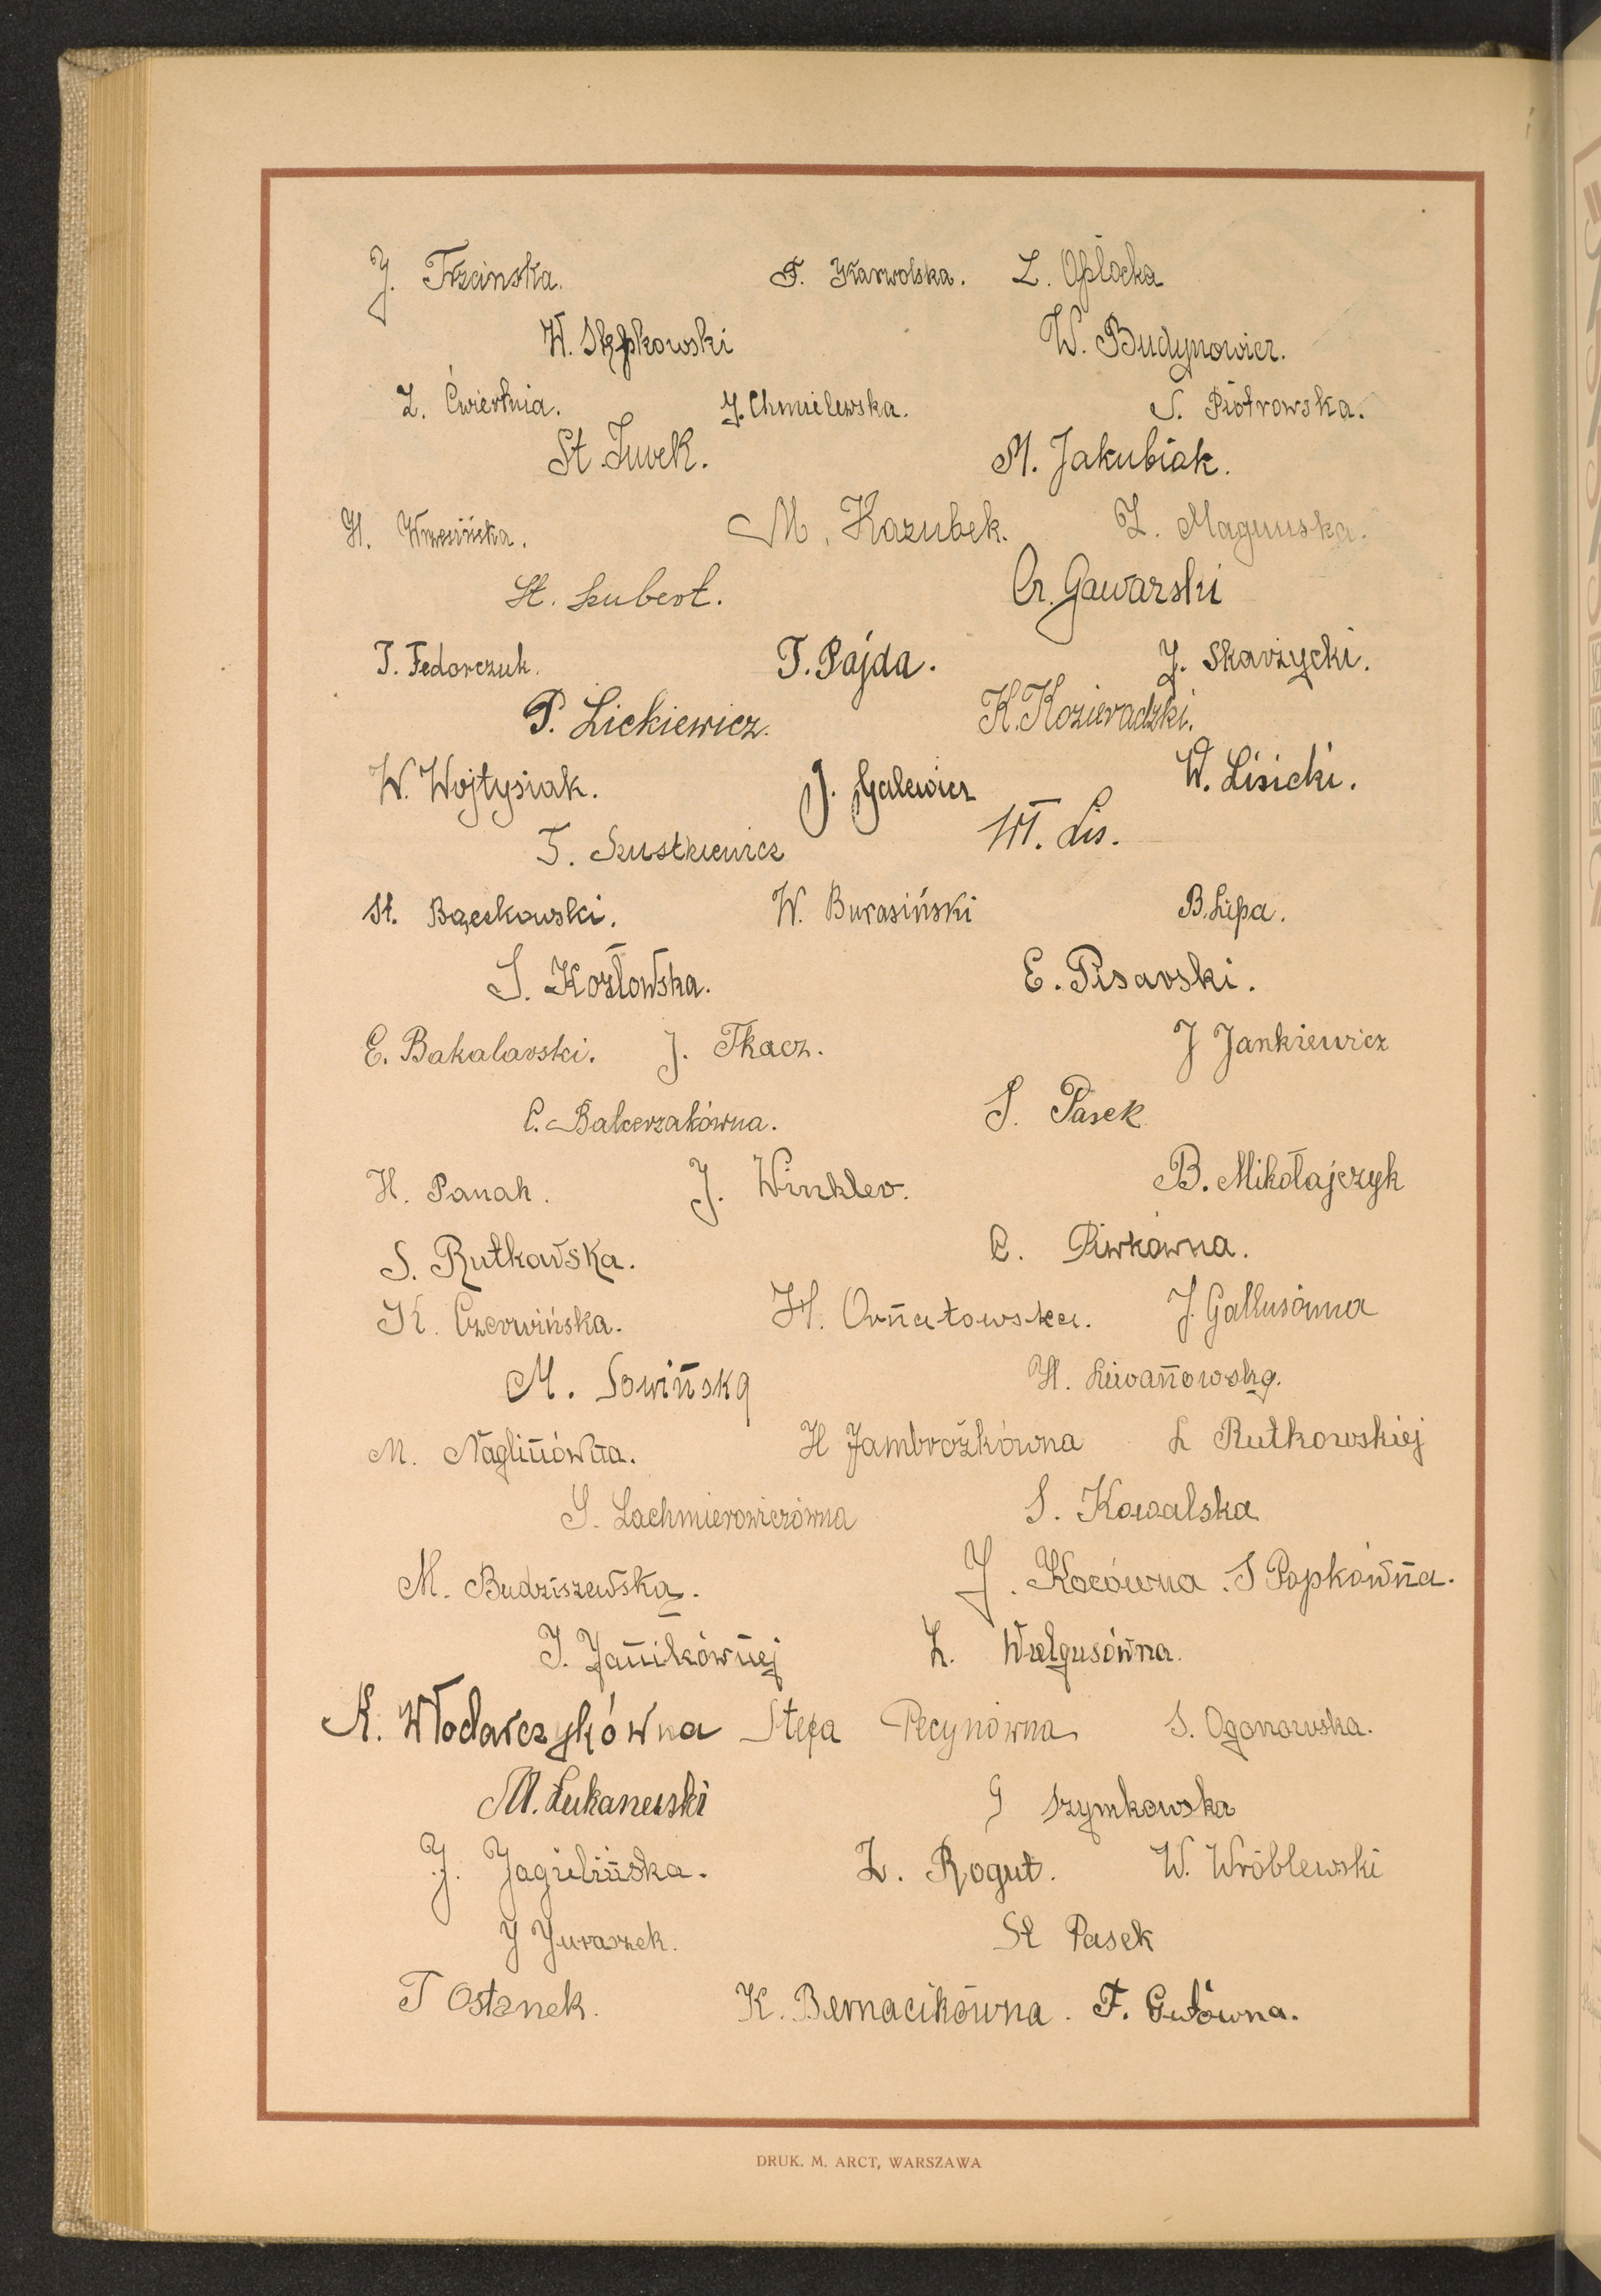 J. Trzcinska. F. Karwolska. L. Opłocka
W. Stępkowski W. Budynowicz.
Z. Ćwiertnia. J. Chmielewska. S. Piotrowska.
St. Turek. M. Jakubiak.
H. Wrzesińska. M. Kazubek. Z. Magnuska.
St. Szubert. Cz. Gawarski
T. Fedorczuk. T. Pajda. J. Skarżycki.
P. Lickiewicz. K. Kozieradzki.
W. Wojtysiak. J. Galewicz W. Lisicki.
T. Szustkiewicz M. Lis.
St. Bączkowski. W. Burasiński B. Lipa.
S. Kozłowska. E. Pisarski.
E. Bakalarski. J. Tkacz. J Jankiewicz
C. Balcerzakówna. S. Pasek
H. Panak. J. Winkler. B. Mikołajczyk
S. Rutkowska. C. Piwkówna.
K. Czerwińska. H. Ornatowska. J. Gallusówna
M. Sowińska H. Liwanowska.
M. Naglinówna. H Jambrożkówna L Rutkowskiej
S. Lachmierowiczówna S. Kowalska
M. Budziszewska. J. Kocówna. S Popkówna.
J. Janikównej Z. Wielgusówna.
K. Włodarczykówna Stefa Pecynówna S. Ogonowska.
M. Łukanewski G Szymkowska
J. Jagielińska. Z. Rogut. W. Wróblewski
J Juraszek. St Pasek
T Ostanek. K. Bernacikówna. F. Gutówna.
DRUK. M. ARCT, WARSZAWA